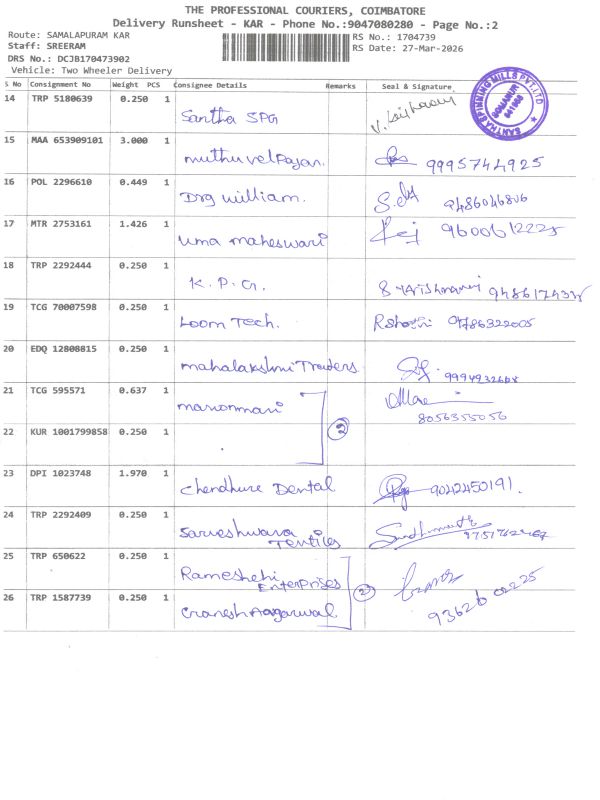 THE PROFESSIONAL COURIERS, COIMBATORE
Delivery Runsheet - KAR - Phone No.:9047080280 - Page No.:2
Route: SAMALAPURAM KAR
Staff: SREERAM
DRS No.: DCJB170473902
Vehicle: Two Wheeler Delivery
RS No.: 1704739
RS Date: 27-Mar-2026
S No Consignment No Weight PCS Consignee Details Remarks Seal & Signature
14 TRP 5180639 0.250 1 Santha SPG
SANTHA SPINNING MILLS PVT.LTD
SOMANUR
641668
15 MAA 653909101 3.000 1 muthuvelRajan. 9995744925
16 POL 2296610 0.449 1 Drg william. 9486046806
17 MTR 2753161 1.426 1 uma maheswari 9600612225
18 TRP 2292444 0.250 1 K. P. G.
19 TCG 70007598 0.250 1 Loom Tech. 9786322005
20 EDQ 12808815 0.250 1 mahalakshmi Traders
21 TCG 595571 0.637 1 manonmani 8056355056
22 KUR 1001799858 0.250 1 2
23 DPI 1023748 1.970 1 Chendhure Dental 9042450191.
24 TRP 2292409 0.250 1 Sarveshwara
Textiles
25 TRP 650622 0.250 1 Rameshehi
Enterprises 2
26 TRP 1587739 0.250 1 Cranesh Aagarwal